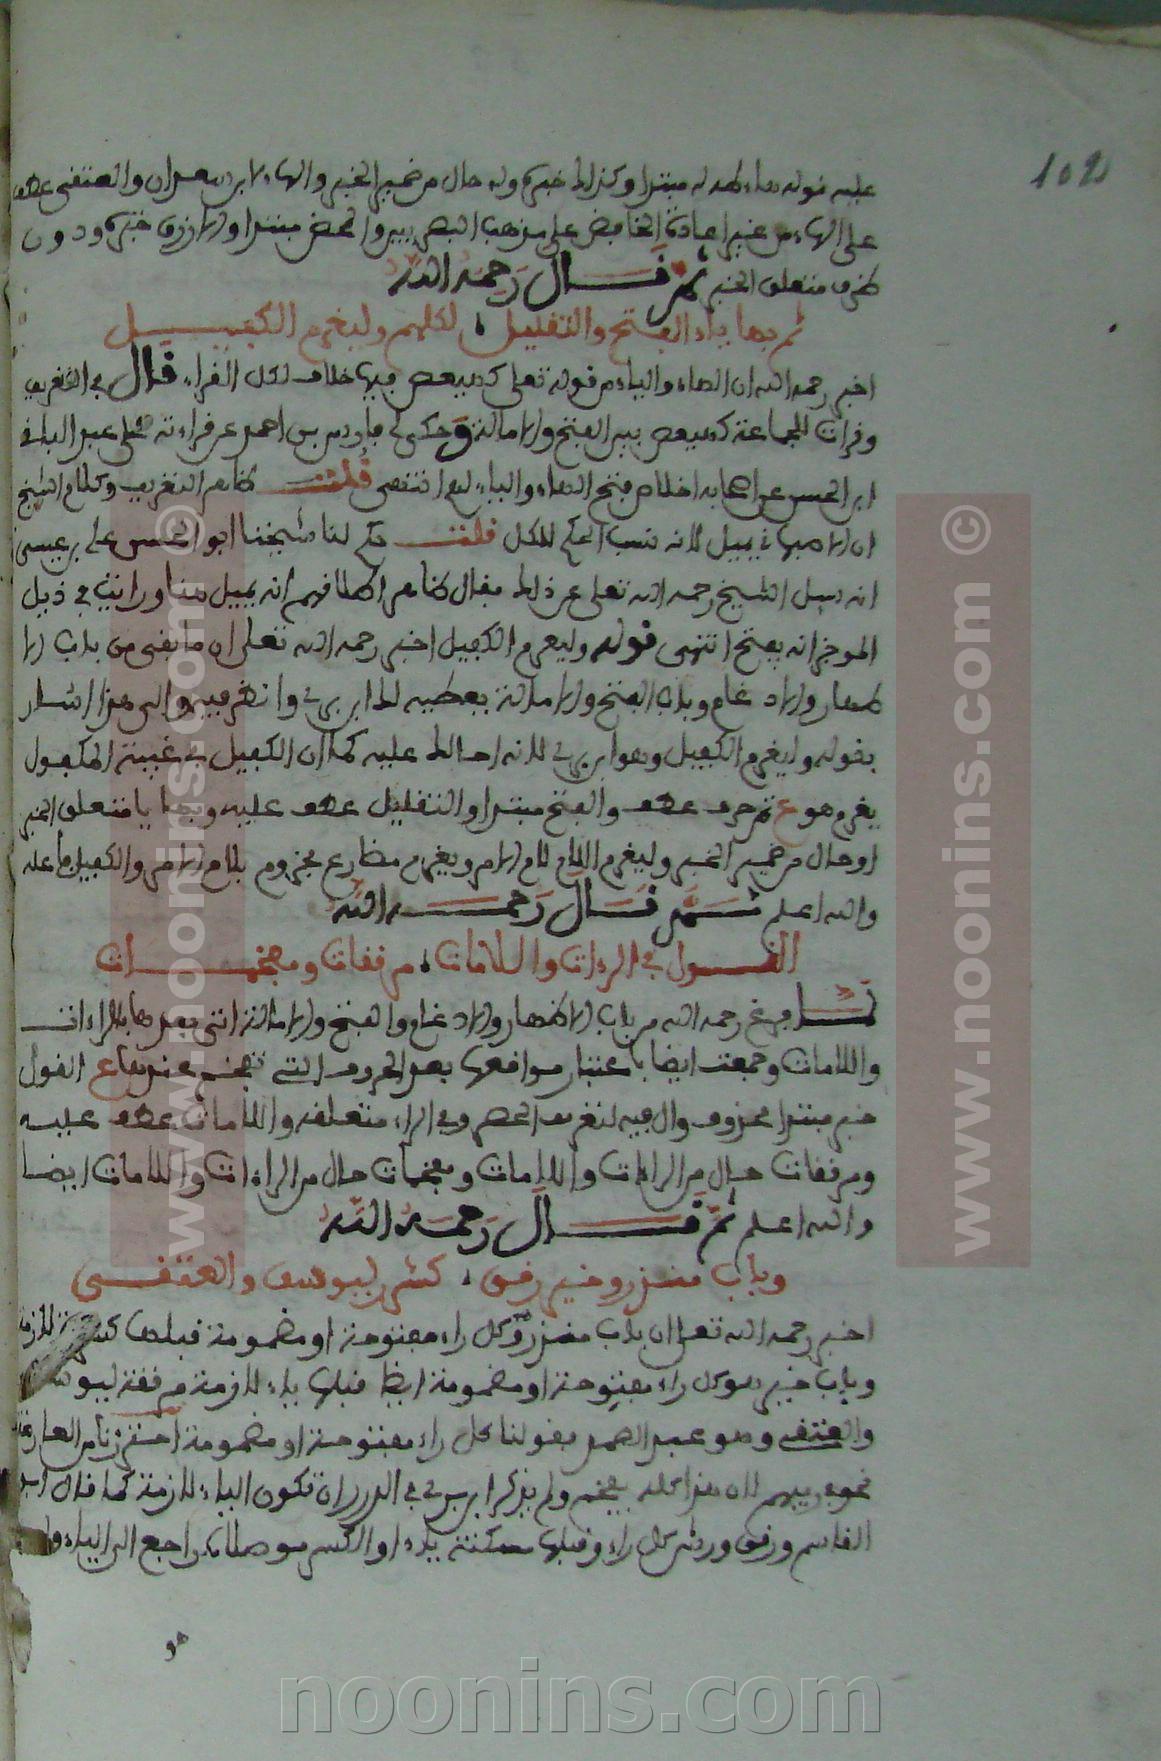 عليه قوله هاء طه له مبتدا وكذلك خبره وله حال من ضمير الخبر والهاء لابن سعدان والعتقي عطف
على الهاء من غير اعادة الخافض على مذهب البصريين والمحض مبتدا والازرق خبره ودون
طرف متعلق الخبر ثم قال رحمه الله
ثم بها ياء الفتح والتقليل لكلهم وليغرم الكفيل
اخبر رحمه الله ان الهاء والياء من قوله تعلى كهيعص فيها خلاف لكل القراء قال في التعريف
وقرات للجماعة كهيعص بين الفتح والامالة وحكى لي فارس بن احمد عن قراءته على عبد الباقي
ابن الحسن عن اصحابه اخلاص فتح الهاء والياء انتهى قلت ظاهر التعريف وكلام الشيخ
لانه نسب الحكم للكل قلت حكى لنا شيخنا ابو الحسن علي بن عيسى
انه سيل الشيخ رحمه الله تعلى عن ذلك فقال ظاهر انه يميل هنا ورايت في ذيل
الموجز انه يفتح انتهى قوله وليغرم الكفيل اخبر رحمه الله تعلى ان ما بقي من باب الا
ظهار والادغام وباب الفتح والامالة يعطيه لك ابن بري وانظر فيه والى هذا اشار
بقوله وليغرم الكفيل وهو ابن بري لانه احالك عليه كما ان الكفيل في غيبة المكفول
يغرم هو ع ثم حرف عطف والفتح مبتدا والتقليل عطف عليه وبها يا متعلق الخبر
او حال من ضمير الخبر وليغرم اللام لام الامر ويغرم مضارع مجزوم بلام الامر والكفيل فاعله
والله اعلم ثم قال رحمه الله
القول في الراءات واللامات مرققات ومفخمات
لما فرغ رحمه الله من باب الاظهار والادغام والفتح والامالة اتى بعدها بالراءات
واللامات وجمعت ايضا باعتبار مواقعها بعد الحروف التي تفخم عند نافع القول
خبر مبتدا محذوف وال فيه لتعريف الحصر وفي الراء متعلقه واللامات عطف عليه
ومرققات حال من الراءات واللامات ومفخمات حال من الراءات واللامات ايضا
والله اعلم ثم قال رحمه الله
وباب منذر وخير رقق كشرر ليوسف والعتقي
اخبر رحمه الله تعلى ان باب منذر وكل راء مفتوحة او مضمومة قبلها كسرة لازمة
وباب خير هو كل راء مفتوحة او مضمومة ايضا قبلها ياء لازمة مرققة ليوسف
والعتقي وهو عبد الصمد بقولنا كل راء مفتوحة او مضمومة احترزنا من العارضة
نحو بربهم لان هذا كله يفخم ولم يذكر ابن بري في الدرر ان تكون الياء لازمة كما قال ابو
القاسم ورقق ورش كل راء وقبلها مسكنة ياء او الكسر موصلا راجع الى الياء
هو